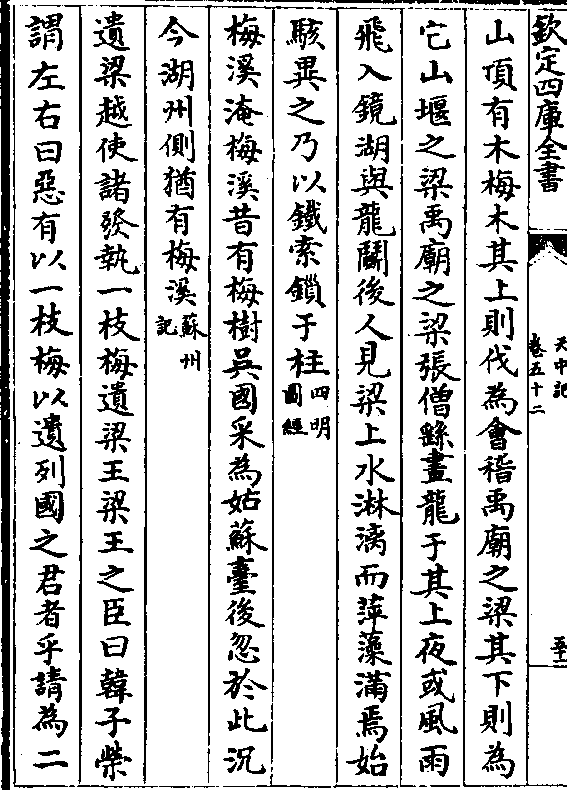 欽定四庫全書
天中記
卷五十二
至十一
山頂有木梅木其上則伐為會稽禹廟之梁其下則為
它山堰之梁禹廟之梁張僧繇畫龍于其上夜或風雨
飛入鏡湖與龍鬬後人見梁上水淋漓而萍藻滿焉始
駭異之乃以鐵索鎖于柱四明圖經
梅溪淹梅溪昔有梅樹吳國采為姑蘇臺後忽於此沉
今湖州側猶有梅溪蘇州記
遺梁越使諸發執一枝梅遺梁王梁王之臣曰韓子榮
謂左右曰惡有以一枝梅以遺列國之君者乎請為二